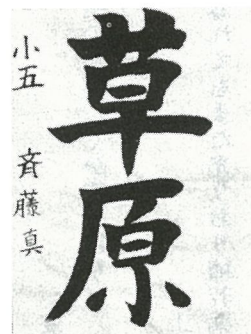 草原
小五 斉藤真